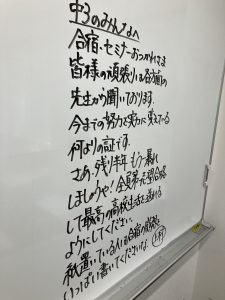 中3のみんなへ
合宿・セミナーおつかれさま
皆様の頑張りは各方面の
先生から聞いております。
今までの努力と実力に変えてる
何よりの証です。
さあ、残り半年 もう一暴れ
しましょうや! 全員第一志望合格
して最高の高校生活を送れる
ようにしてください。
私置いている人は合宿の感想
いっぱい書いてくださいな